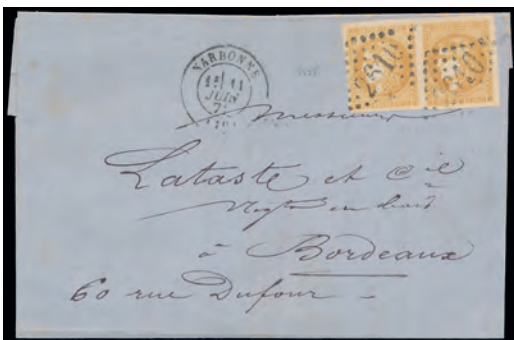 NARBONNE
11
JUIN
71
2610
2610
Messieurs
Lataste et Cie
Negts en
à Bordeaux
60 rue Dufour